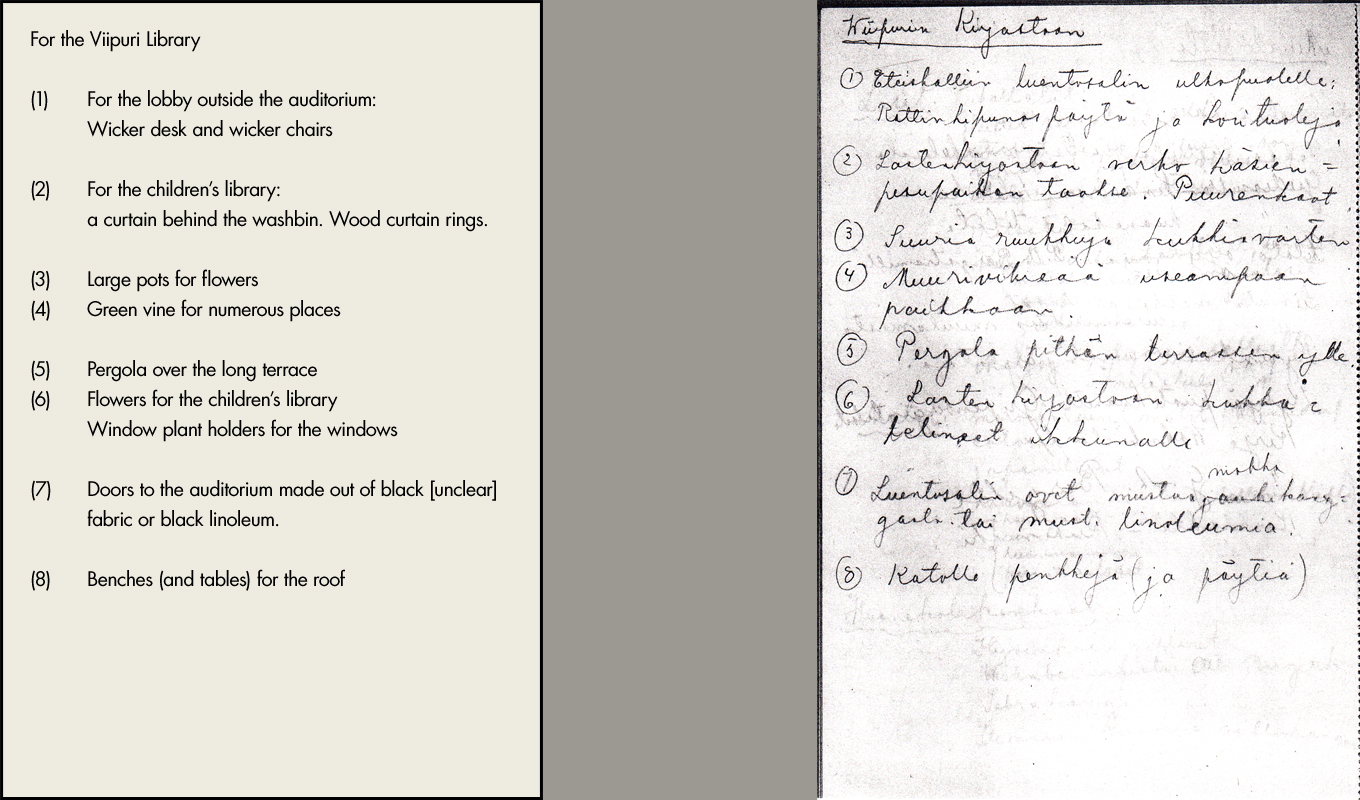 For the Viipuri Library
(1) For the lobby outside the auditorium:
Wicker desk and wicker chairs
(2) For the children's library:
a curtain behind the washbin. Wood curtain rings.
(3) Large pots for flowers
(4) Green vine for numerous places
(5) Pergola over the long terrace
(6) Flowers for the children's library
Window plant holders for the windows
(7) Doors to the auditorium made out of black [unclear]
fabric or black linoleum.
(8) Benches (and tables) for the roof
Wiipurin Kirjastoon
① Eteishalliin luentosalin ulkopuolelle;
pöytä ja korituoleja
② Lastenkirjastoon verho käsien=
pesupaikan taakse. Puurenkaat.
③ Suuria ruukkuja kukkia varten
④ Muurivihreää useampaan
paikkaan.
⑤ Pergola pitkän terrassin ylle.
⑥ Lasten kirjastoon kukka=
telineet ikkunalle
⑦ Luentosalin ovet mustaa
tai must. linoleumia.
⑧ Katolle penkkejä (ja pöytiä)